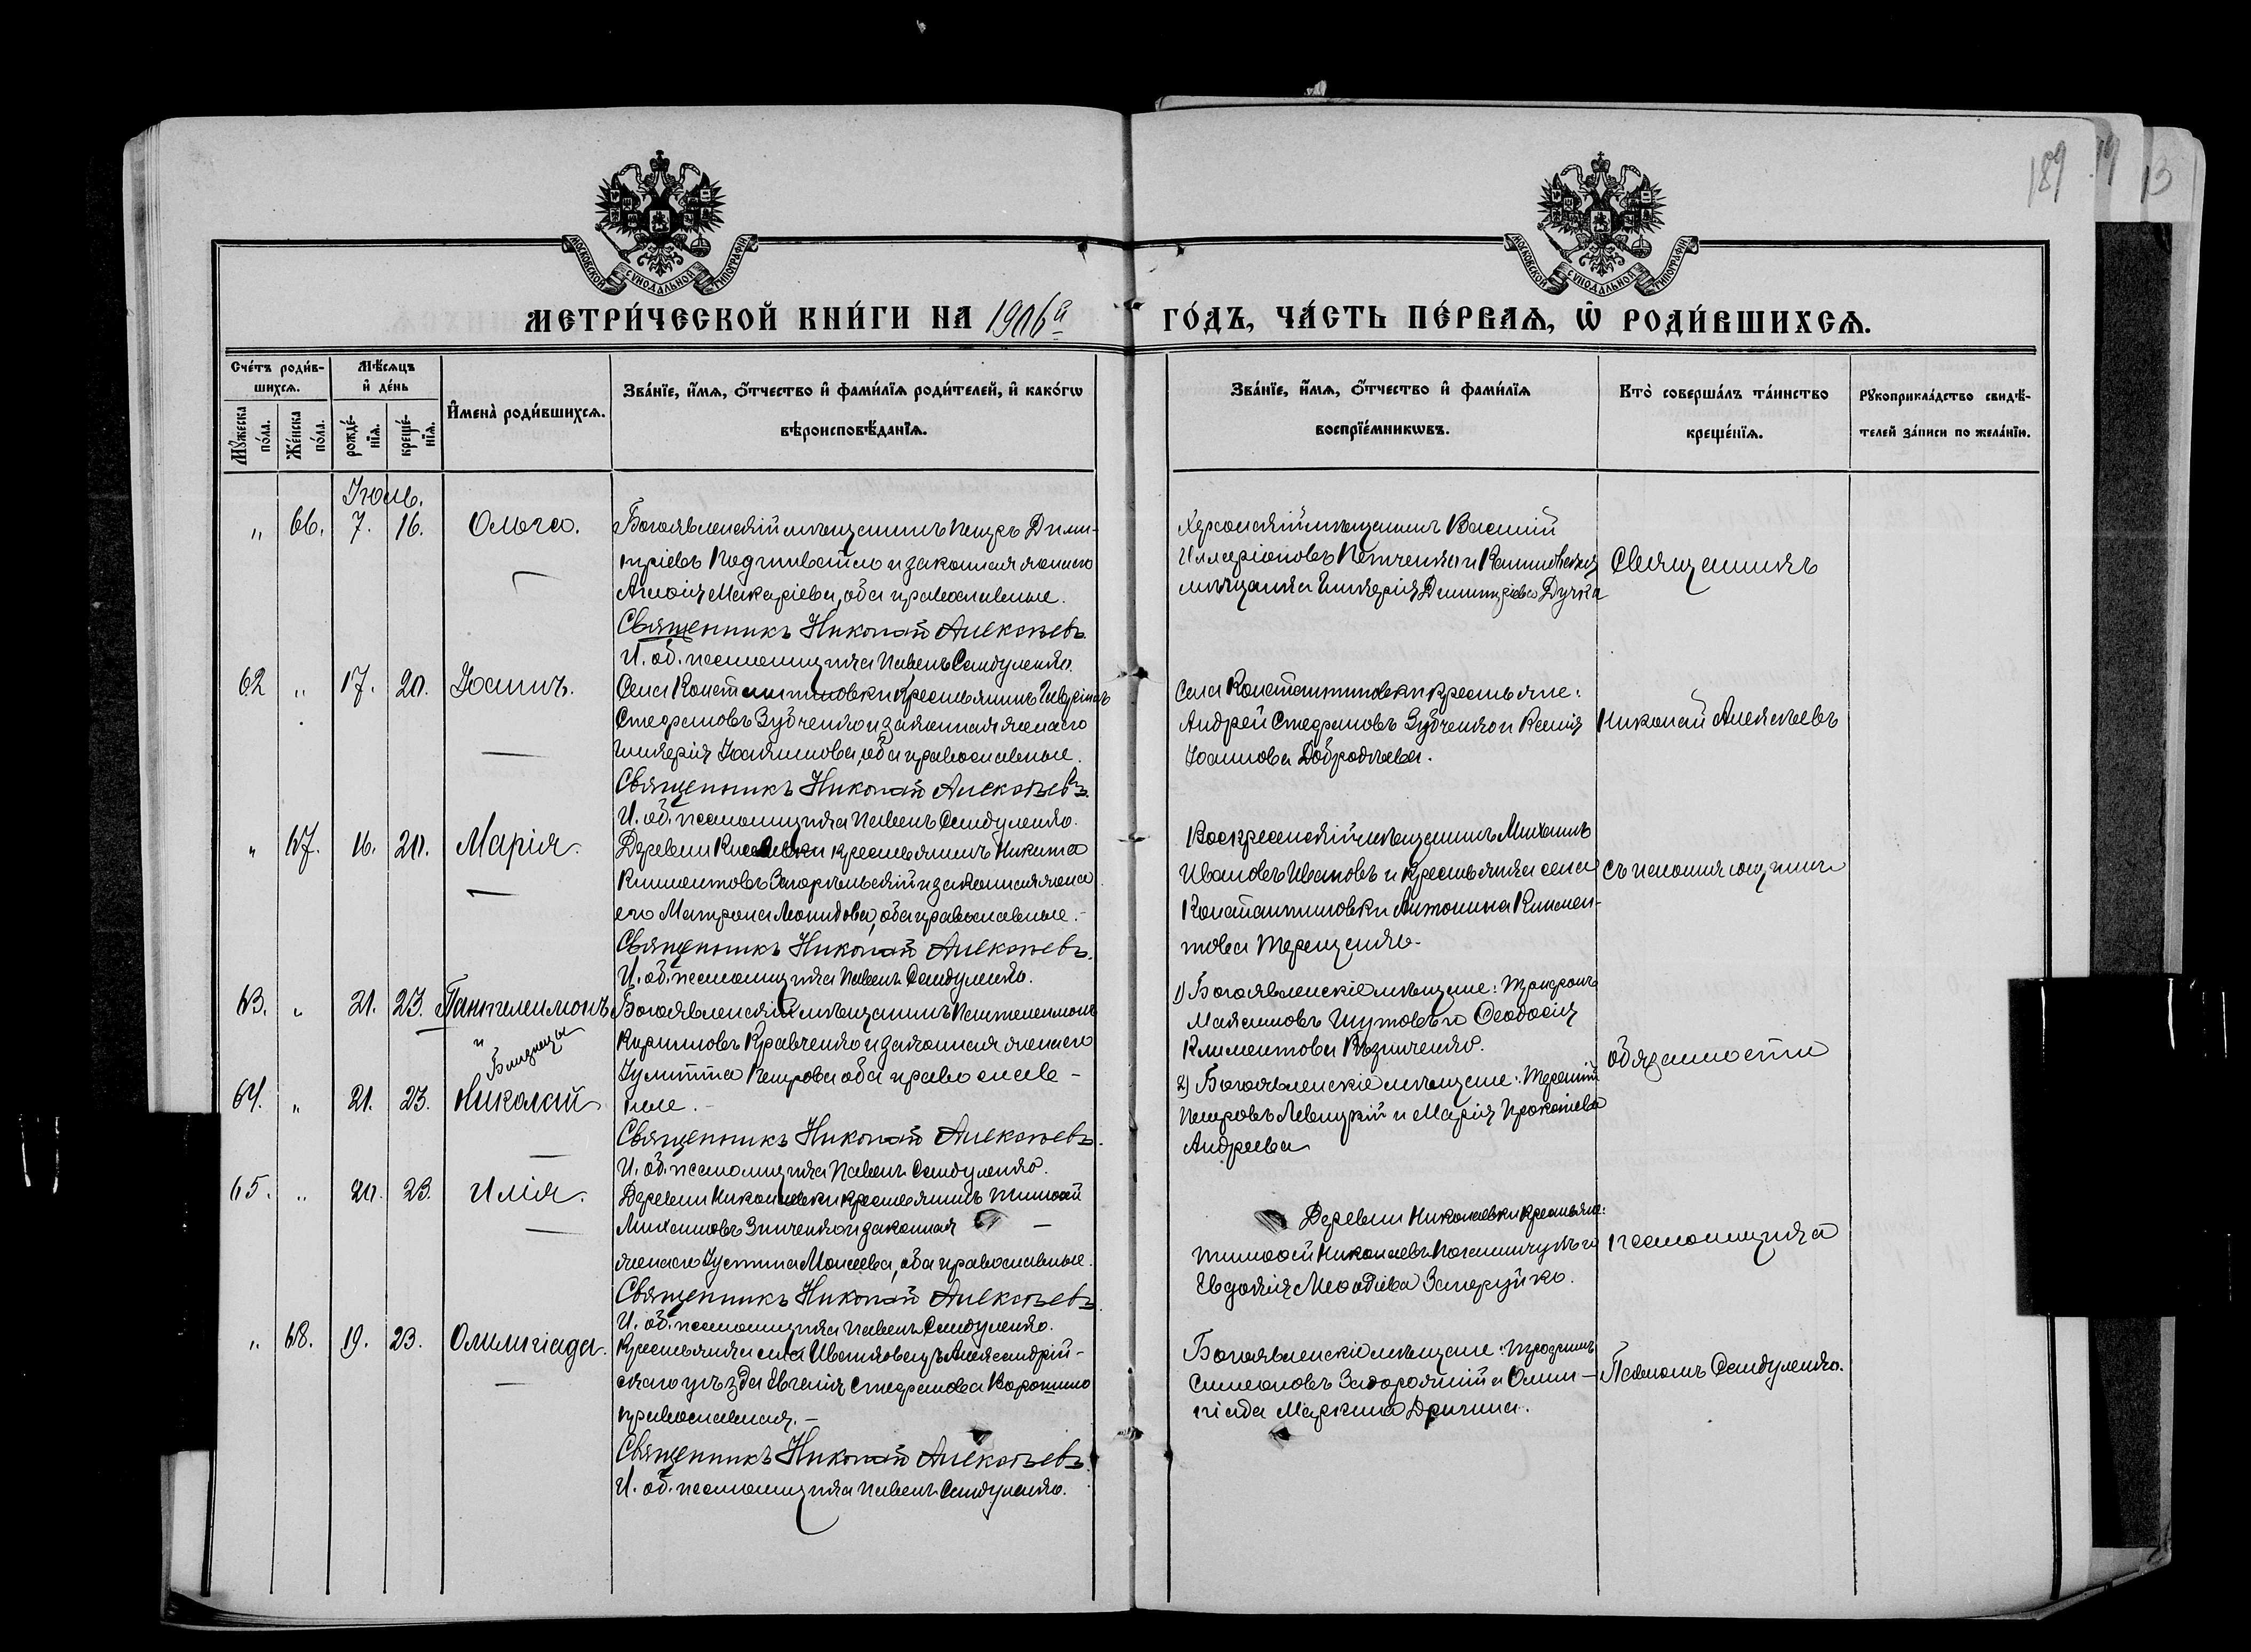 189
19
13
МОСКОВСКОЙ СѴНОДАЛЬНОЙ ТИПОГРАФІИ
МОСКОВСКОЙ СѴНОДАЛЬНОЙ ТИПОГРАФІИ
МЕТРИ́ЧЕСКОЙ КНИ́ГИ НА 1906й ГО́ДЪ, ЧА́СТЬ ПЕ́РВАѦ, Ѡ҆ РОДИ́ВШИХСѦ.
Сче́тъ роди́в-
шихсѧ.
Мꙋ́жеска по́ла.
Же́нска по́ла.
Мѣ́сѧцъ
и҆ де́нь
рожде́-нїѧ.
креще́-нїѧ.
И҆мена̀ роди́вшихсѧ.
Зва́нїе, и҆́мѧ, ѻ҆́тчество и҆ фами́лїѧ роди́телей, и҆ како́гѡ
вѣроисповѣ́данїѧ.
Зва́нїе, и҆́мѧ, ѻ҆́тчество и҆ фами́лїѧ
воспрїе́мникѡвъ.
Кто̀ соверша́лъ та́инство
креще́нїѧ.
Рꙋкоприкла́дство свидѣ́-
телей за́писи по жела́нїю.
Іюль.
" 66. 7. 16. Ольга.
Богоявленскій мѣщанинъ Петръ Дими-
тріевъ и законная жена его
Макаріева, оба православные.
Священникъ Николай Алексѣевъ.
И. об. псаломщика Павелъ Сандуленко.
Херсонскій мѣщанинъ Василій
Илларіоновъ и
мѣщанка Гликерія Димитріева
Священникъ
62 " 17. 20. Іоаннъ.
Села Константиновки крестьянинъ
Стефановъ Зубченко и законная жена его
Гликерія Іоакимова, оба православные.
Священникъ Николай Алексѣевъ.
И. об. псаломщика Павелъ Сандуленко.
Села Константиновки крестьяне:
Андрей Стефановъ Зубченко и Ксенія
Іоаннова
Николай Алексѣевъ
" 67. 16. 20. Марія.
Деревни крестьянинъ Никита
Климентовъ и законная жена
его Матрона Леонидова, оба православные.-
Священникъ Николай Алексѣевъ.
И. об. псаломщика Павелъ Сандуленко.
Воскресенскій мѣщанинъ Михаилъ
Ивановъ Ивановъ и крестьянка села
Константиновки Антонина Климен-
това Терещенко.
съ исполняющимъ
63. " 21. 23. Пантелеимонъ
и
Близнецы
64. " 21. 23. Николай
Богоявленскій мѣщанинъ Пантелеимонъ
Кирилловъ Кравченко и законная жена его
Іулитта Петрова оба православ-
ные.-
Священникъ Николай Алексѣевъ.
И. об. псаломщика Павелъ Сандуленко.
1) Богоявленскіе мѣщане: Трифонъ
Максимовъ Шутовъ и Ѳеодосія
Климентова
2) Богоявленскіе мѣщане: Терентій
Петровъ Левицкій и Марія Прокопіева
Андреева
обязанности
65. " 20. 23. Илія.
Деревни Николаевки крестьянинъ Тимоѳей
Михаиловъ Зинченко и законная —
жена его Іустина Моисеева, оба православные.
Священникъ Николай Алексѣевъ.
И. об. псаломщика Павелъ Сандуленко.
Деревни Николаевки крестьяне:
Тимоѳей Николаевъ и
Евдокія Меѳодіева Загоруйко.
псаломщика
" 68. 19. 23. Олимпіада.
Крестьянка села Александрій-
скаго уѣзда Евгенія Стефанова
православная.-
Священникъ Николай Алексѣевъ.
И. об. псаломщика Павелъ Сандуленко.
Богоявленскіе мѣщане: Трофимъ
Симеоновъ Задорожній и Олим-
піада Маркина
Павломъ Сандуленко.